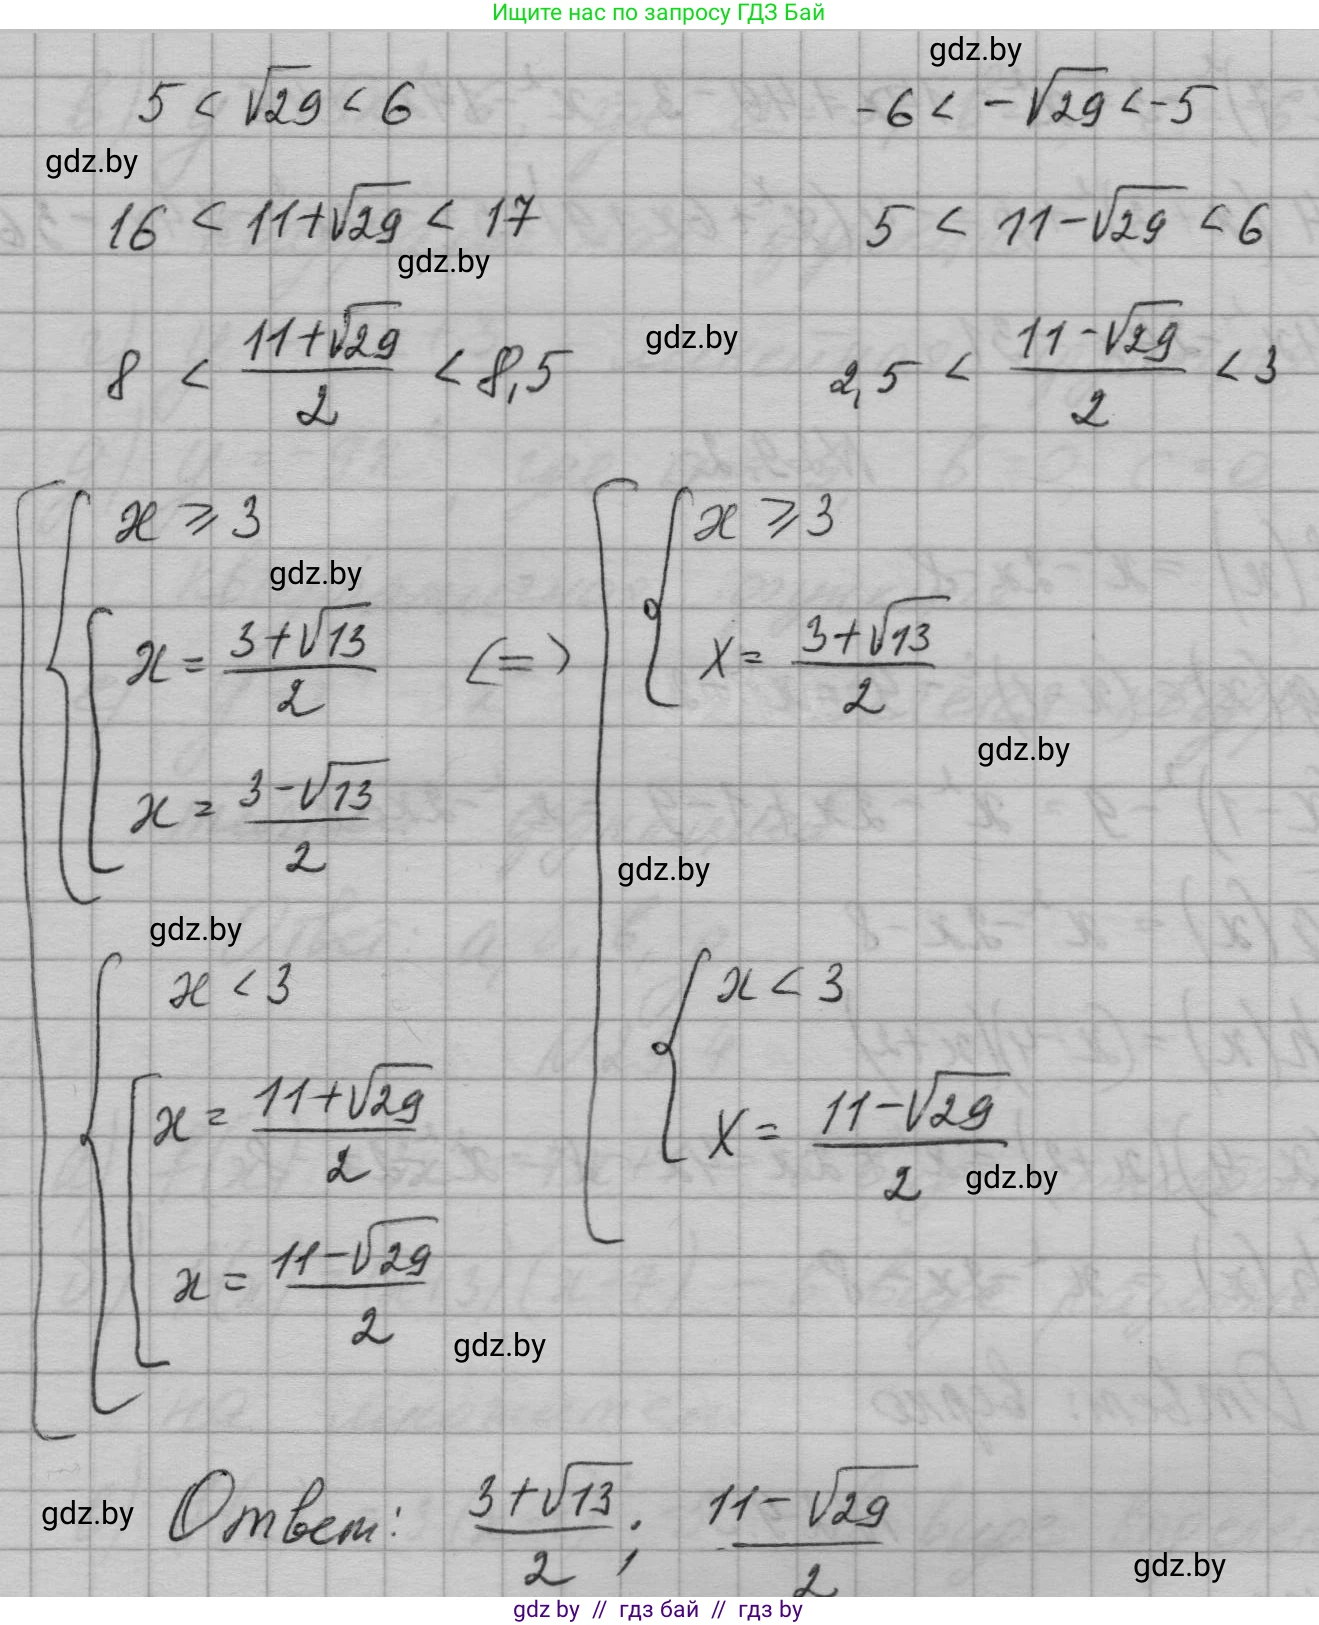 Ищите нас по запросу ГДЗ Бай
gdz.by
5 < √29 < 6
-6 < -√29 < -5
gdz.by
16 < 11+√29 < 17
5 < 11-√29 < 6
gdz.by
8 < (11+√29)/2 < 8,5
gdz.by
2,5 < (11-√29)/2 < 3
x ⩾ 3
x ⩾ 3
gdz.by
x = (3+√13)/2
(=>
x = (3+√13)/2
gdz.by
x = (3-√13)/2
gdz.by
gdz.by
x < 3
x < 3
x = (11+√29)/2
x = (11-√29)/2
gdz.by
x = (11-√29)/2
gdz.by
gdz.by
Ответ: (3+√13)/2; (11-√29)/2
gdz.by
gdz by // гдз бай // гдз by